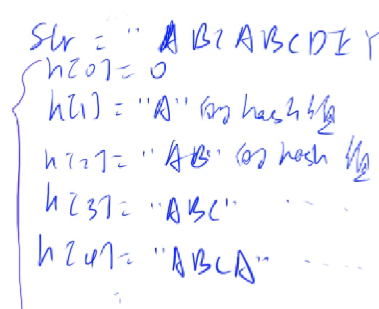 Str = "ABCABCDEY
h[0] = 0
h[1] = "A" hash
h[2] = "AB" hash
h[3] = "ABC" .....
h[4] = "ABCA" .....